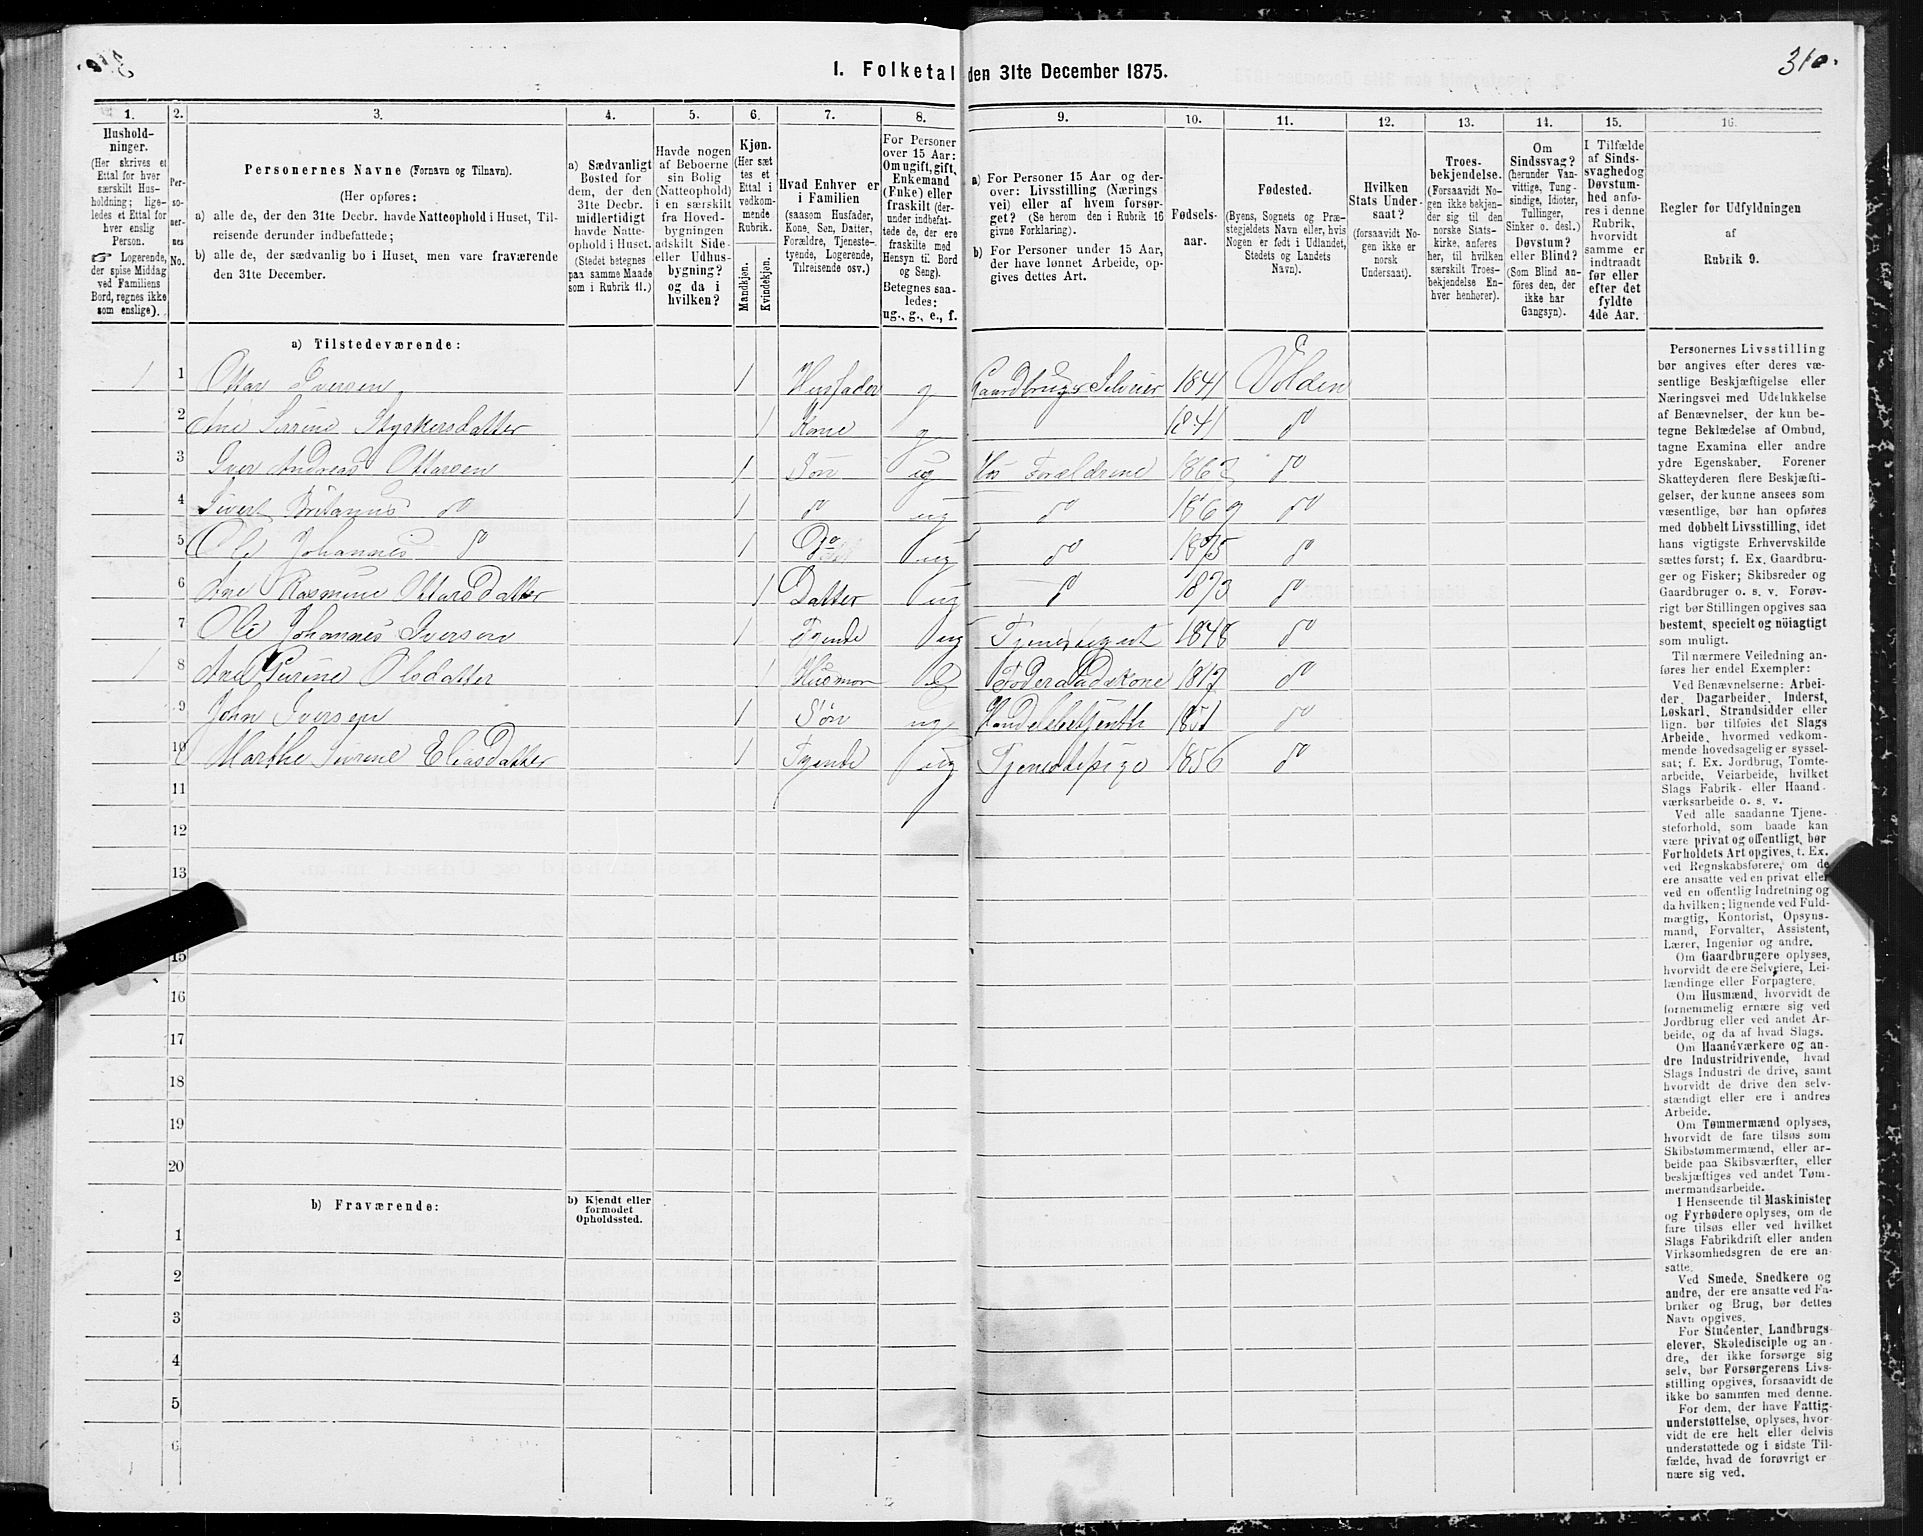 310.
I. Folketal den 31te December 1875.
1. 2. 3. 4. 5. 6. 7. 8. 9. 10. 11. 12. 13. 14. 15. 16.
Husholdninger. (Her skrives et Ettal for hver særskilt Husholdning; ligeledes et Ettal for hver enslig Person. ☞ Logerende, der spise Middag ved Familiens Bord, regnes ikke som enslige).
Personernes No.
Personernes Navne (Fornavn og Tilnavn).
(Her opføres:
a) alle de, der den 31te Decbr. havde Natteophold i Huset, Tilreisende derunder indbefattede;
b) alle de, der sædvanlig bo i Huset, men vare fraværende den 31te December.
a) Sædvanligt Bosted for dem, der den 31te Decbr. midlertidigt havde Natteophold i Huset. (Stedet betegnes paa samme Maade som i Rubrik 11.)
Havde nogen af Beboerne sin Bolig (Natteophold) i en særskilt fra Hovedbygningen adskilt Side- eller Udhusbygning? og da i hvilken?
Kjøn. (Her sættes et Ettal i vedkommende Rubrik. Mandkjøn. Kvindekjøn.
Hvad Enhver er i Familien (saasom Husfader, Kone, Søn, Datter, Forældre, Tjenestetyende, Logerende, Tilreisende osv.)
For Personer over 15 Aar: Om ugift, gift, Enkemand (Enke) eller fraskilt (derunder indbefattede de, der ere fraskilte med Hensyn til Bord og Seng). Betegnes saaledes: ug., g., e., f.
a) For Personer 15 Aar og derover: Livsstilling (Næringsvei) eller af hvem forsørget? (Se herom den i Rubrik 16 givne Forklaring).
b) For Personer under 15 Aar, der have lønnet Arbeide, opgives dettes Art.
Fødselsaar.
Fødested. (Byens, Sognets og Præstegjeldets Navn eller, hvis Nogen er født i Udlandet, Stedets og Landets Navn).
Hvilken Stats Undersaat? (forsaavidt Nogen ikke er norsk Undersaat).
Troesbekjendelse. (Forsaavidt Nogen ikke bekjender sig til den norske Statskirke, anføres her, til hvilken særskilt Troesbekjendelse Enhver henhører).
Om Sindssvag? (herunder Vanvittige, Tungsindige, Idioter, Tullinger, Sinker o. desl.) Døvstum? eller Blind? (Som Blind anføres den, der ikke har Gangsyn).
I Tilfælde af Sindssvaghed og Døvstumhed anføres i denne Rubrik, hvorvidt samme er indtraadt før eller efter det fyldte 4de Aar.
Regler før Udfyldningen af Rubrik 9.
a) Tilstedeværende:
1 1 Ottar Iversen 1 Husfader g Gaardbruger Selveier 1841 Volden
2 Ane Sirine Styrkersdatter 1 Kone g 1841 do
3 Iver Andreas Ottarsen 1 Søn ug Hos Forældrene do
4 Sivert do 1 do ug do 1869 do
5 Ole Johannes do 1 Do ug do 1875 do
6 Ane Rasmine Ottarsdatter 1 Datter ug do 1873 do
7 Ole Johannes Iversen 1 Tyende ug 1848 do
1 8 Ane Olsdatter 1 Føderaadskone do
9 John Iversen 1 Søn ug 1851 do
10 Marthe Sivrine Eliasdatter 1 Tyende ug Tjenestepige 1856 do
11
12
13
15
16
17
18
19
20
b) Fraværende: b) Kjendt eller formodet Opholdssted.
1
2
3
4
5
6
Personernes Livsstilling
bør angives efter deres væ-
sentlige Beskjæftigelse eller
Næringsvei med Udelukkelse
af Benævnelser, der kun be-
tegne Beklædelse af Ombud,
tagne Examina eller andre
ydre Egenskaber. Forener
Skatteyderen flere Beskjæfti-
gelser, der kunne ansees som
væsentlige, bør han opføres
med dobbelt Livsstilling, idet
hans vigtigste Erhvervskilde
sættes først; f. Ex. Gaardbru-
ger og Fisker; Skibsreder og
Gaardbruger o. s. v. Forøv-
rigt bør Stillingen opgives saa
bestemt, specielt og nöiagtigt
som muligt.
Til nærmere Veiledning an-
føres her endel Exempler:
Ved Benævnelserne: Arbei-
der, Dagarbeider, Inderst,
Løskarl, Strandsidder eller
lign. bør tilføies det Slags
Arbeide, hvormed vedkom-
mende hovedsagelig er syssel-
sat; f. Ex. Jordbrug, Tomte-
arbeide, Veiarbeide, hvilket
Slags Fabrik- eller Haand-
værksarbeide o. s. v.
Ved alle saadanne Tjene-
steforhold, som baade kan
være privat og offentligt, bør
Forholdets Art opgives, t. Ex.
ved Regnskabsførere, om de
ere ansatte ved en privat eller
ved en offentlig Indretning og
da hvilken; lignende ved Fuld-
mægtig, Kontorist, Opsyns-
mand, Forvalter, Assistent,
Lærer, Ingeniør og andre.
Om Gaardbrugere oplyses,
hvorvidt de ere Selveiere, Lei-
lændinge eller Forpagtere.
Om Husmænd, hvorvidt de
fornemmelig ernære sig ved
Jordbrug eller ved andet Ar-
beide, og da af hvad Slags.
Om Haandværkere og an-
dre Industridrivende, hvad
Slags Industri de drive, samt
hvorvidt de drive den selv-
stændigt eller ere i andres
Arbeide.
Om Tømmermænd oplyses,
hvorvidt de fare tilsøs som
Skibstømmermænd, eller ar-
beide paa Skibsværfter, eller
beskjæftiges ved andet Tøm-
mermandsarbeide.
I Henseende til Maskinister
og Fyrbødere oplyses, om de
fare tilsøs eller ved hvilket
Slags Fabrikdrift eller anden
Virksomhedsgren de ere an-
satte.
Ved Smede, Snedkere og
andre, der ere ansatte ved Fa-
briker og Brug, bør dettes
Navn opgives.
For Studenter, Landbrugs-
elever, Skoledisciple og an-
dre, der ikke forsørge sig
selv, bør Forsørgerens Livs-
stilling opgives, forsaavidt de
ikke bo sammen med denne.
For dem, der have Fattig-
understøttelse, oplyses, hvor-
vidt de ere helt eller delvis
understøttede og i sidste Til-
fælde, hvad de forøvrigt er-
nære sig ved.